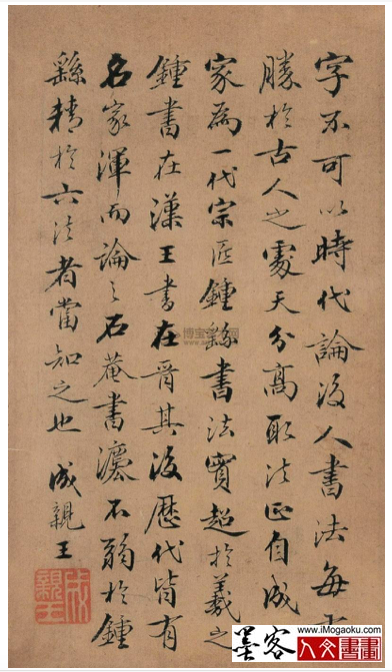 字不可以時代論後人書法每有
勝於古人之處天分高取法正自成
家為一代宗匠鍾繇書法實超於羲之
鍾書在漢王書在晉其後歷代皆有
名家渾而論之石菴書不弱於鍾
繇精於六法者當知之也
成親王
成親王
www.iMogaoku.com
墨客
人文書畫